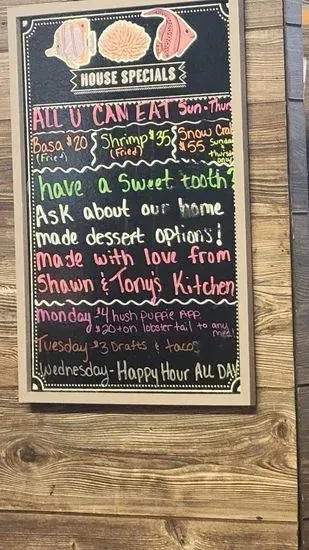 HOUSE SPECIALS
ALL U CAN EAT Sun-Thurs
Basa $20 (Fried)
Shrimp $35 (Fried)
Snow Crab $55 Sunday & Thursday ONLY
have a Sweet tooth?
Ask about our home
made dessert options!
made with love from
Shawn & Tony's Kitchen
monday $4 hush puppie App
$20 ton lobster tail to any meal
Tuesday $3 Drafts & tacos
Wednesday - Happy Hour ALL DAY